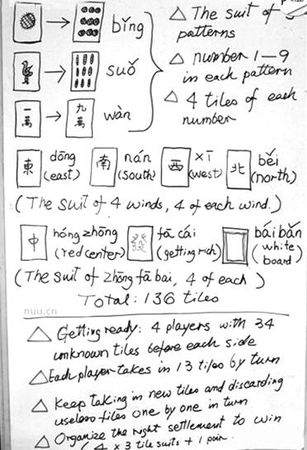 bǐng
suǒ
一萬 九萬 wàn
△ The suit of patterns
△ number 1-9 in each pattern
△ 4 tiles of each number
東 dōng (east) 南 nán (south) 西 xī (west) 北 běi (north)
(The suit of 4 winds, 4 of each wind.)
中 hóng zhōng (red center) 發 fā cái (getting rich) bái bǎn (white board)
(The suit of zhōng fā bái, 4 of each)
Total: 136 tiles
nuu.cn
△ Getting ready: 4 players with 34
unknown tiles before each side
△ Each player takes in 13 tiles by turn
△ Keep taking in new tiles and discarding
useless tiles one by one in turn
△ Organize the right settlement to win
(4 x 3 tile suits + 1 pair